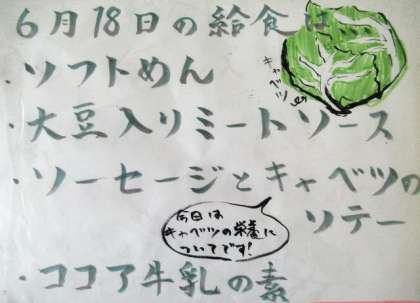 6月18日の給食は、
ソフトめん
・大豆入りミートソース
・ソーセージとキャベツの
ソテー
・ココア牛乳の素
キャベツ
今日は
キャベツの栄養に
ついてです!